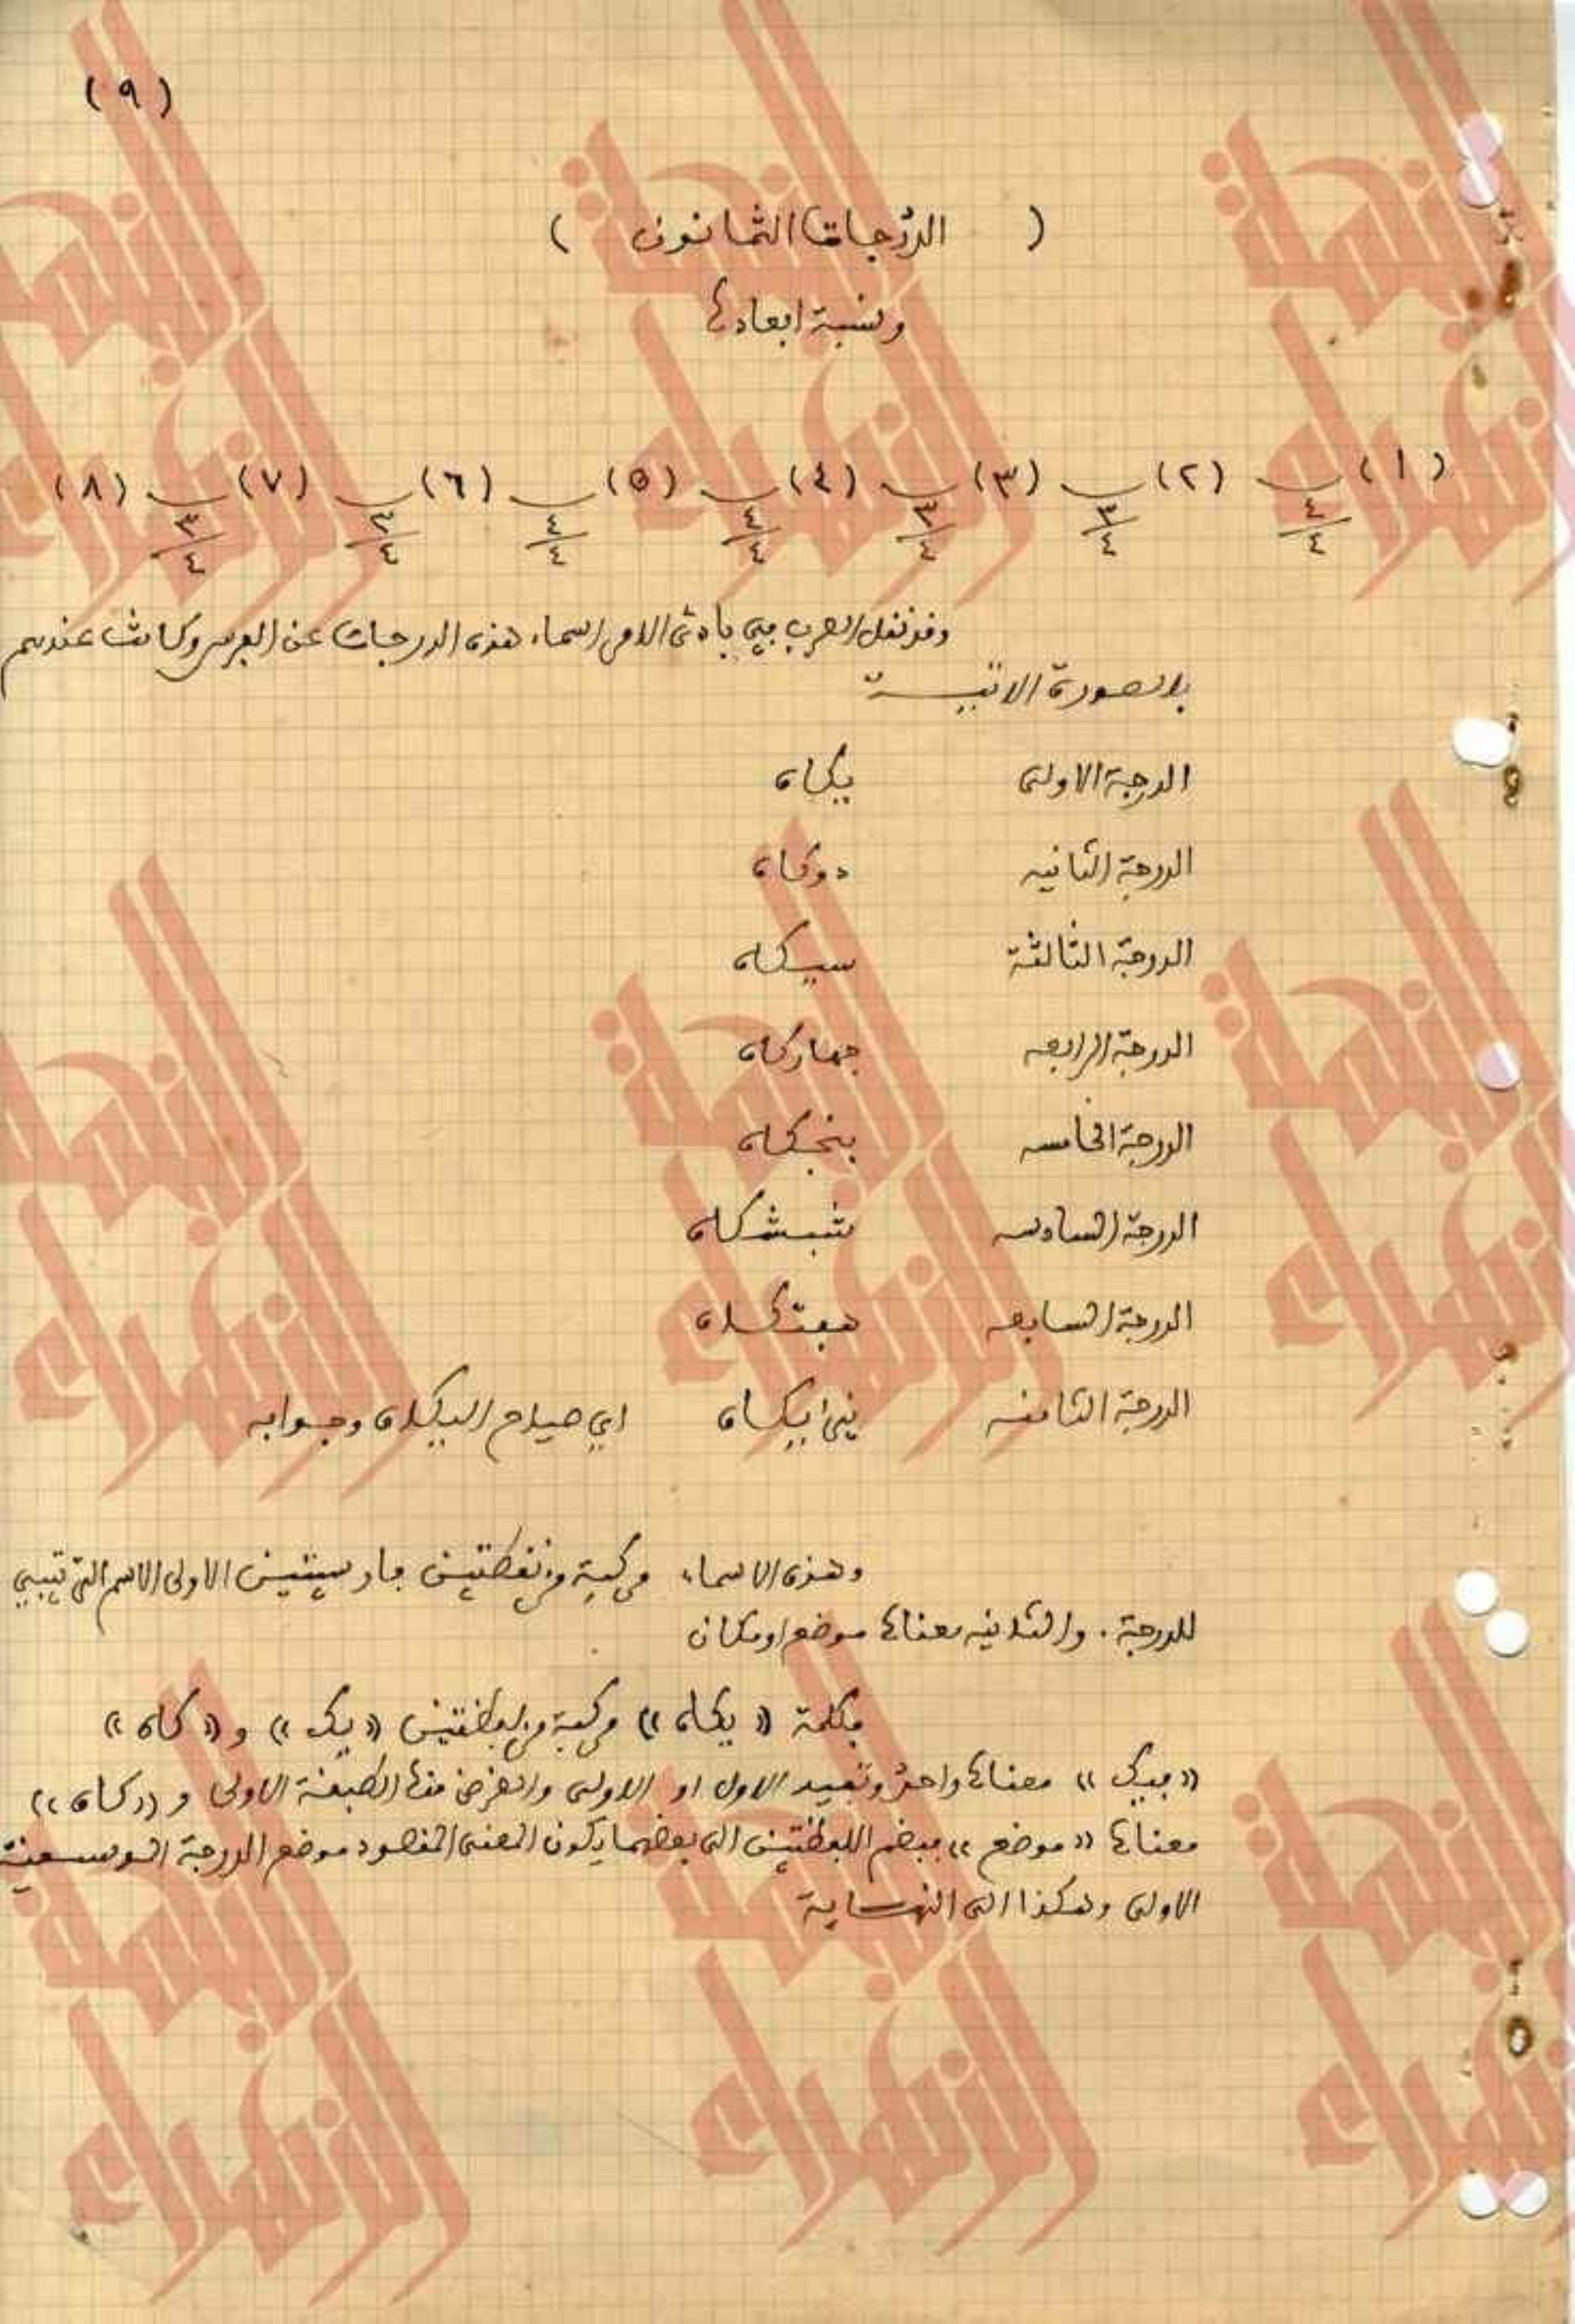 (٩)
( الدرجات الثمانون )
ونسبة ابعادها
(١) ٤/٤ (٢) ٣/٤ (٣) ٣/٤ (٤) ٤/٤ (٥) ٤/٤ (٦) ٣/٤ (٧) ٣/٤ (٨)
وقد نقل العرب في بادئ الامر اسماء هذه الدرجات عن الفرس وكانت عندهم
بالصورة الاتيـــة
الدرجة الاولى يكاه
الدرجة الثانيه دوكاه
الدرجة الثالثة سيكاه
الدرجة الرابعه جهاركاه
الدرجة الخامسه بنجكاه
الدرجة السادسه ششكاه
الدرجة السابعه هفتكاه
الدرجة الثامنه اي صياح اليكاه وجوابه
وهذه الاسماء مركبة من لفظتين فارسيتين الاولى الاسم الترتيبي
للدرجة . والثانيه معناها موضع او مكان
فكلمة « يكاه » مركبة من لفظتين « يك » و « كاه »
« فيك » معناها واحد وتفيد الاول او الاولى والغرض منها الطبقة الاولى و « كاه »
معناها « موضع » فبضم اللفظتين الى بعضهما يكون المعنى المقصود موضع الدرجة الموسيقية
الاولى وهكذا الى النهـــاية
النهضة
الزهراء